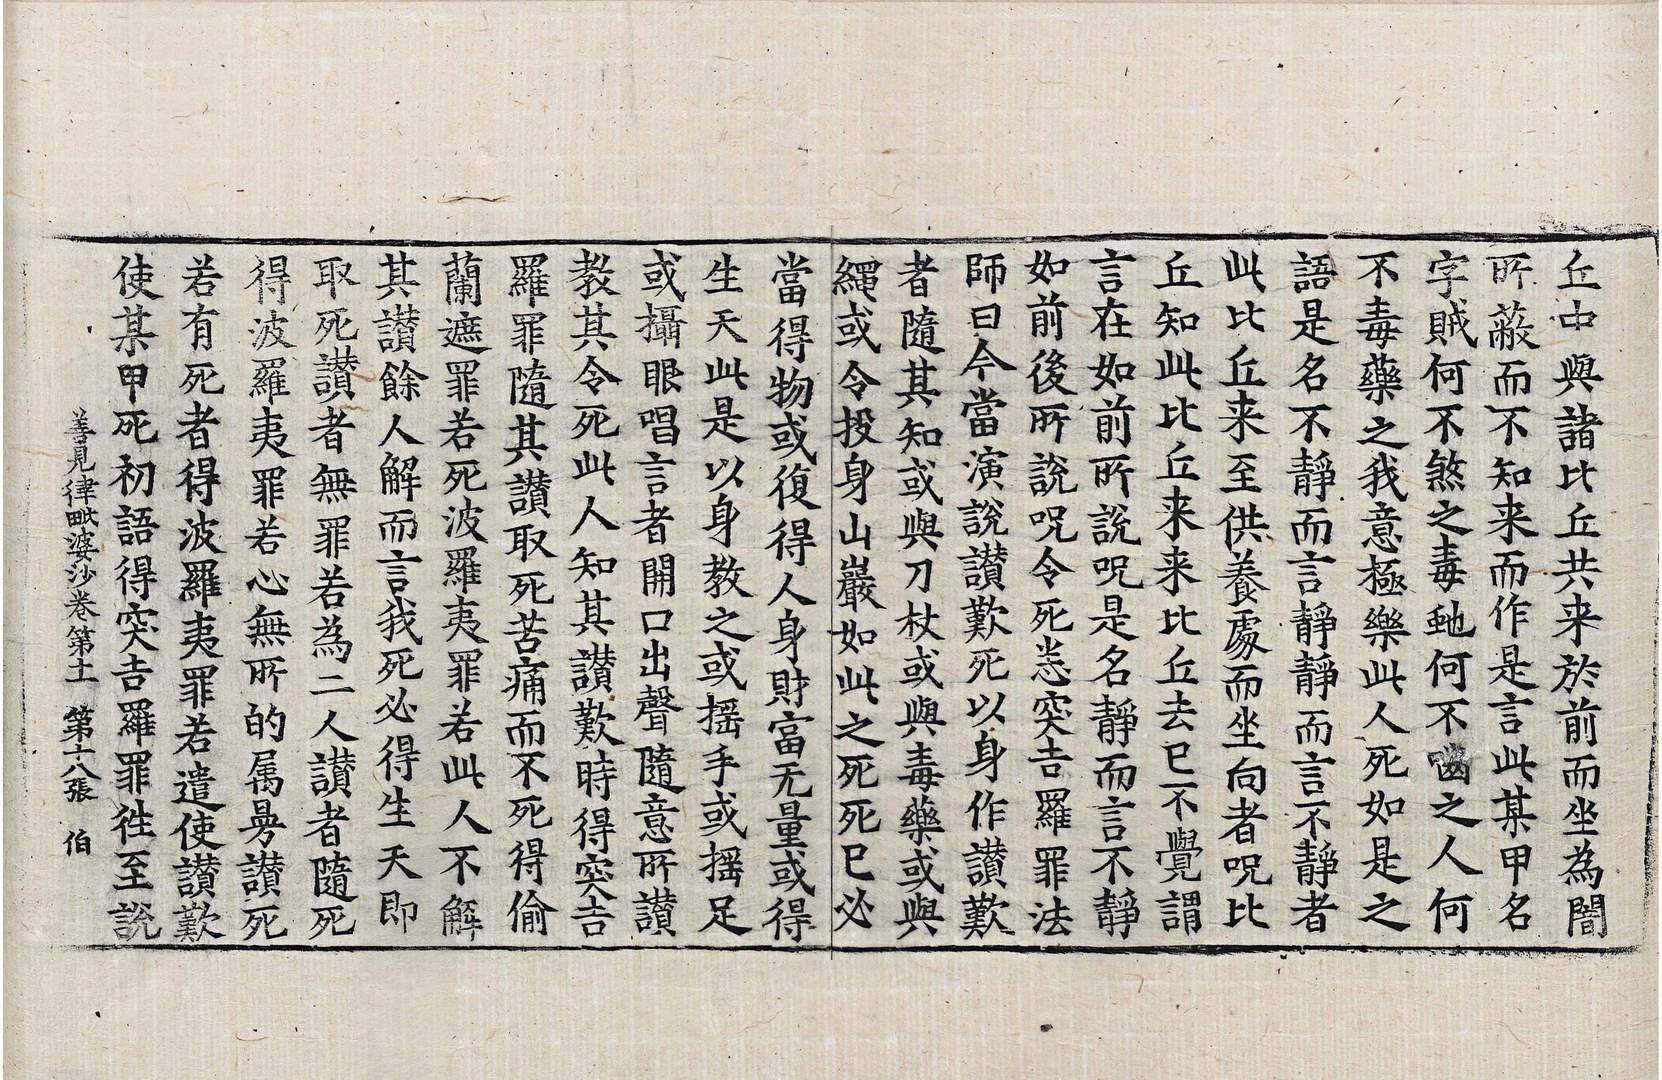 丘中與諸比丘共来於前而坐為闇
所蔽而不知来而作是言此某甲名
字賊何不煞之毒虵何不嚙之人何
不毒藥之我意極樂此人死如是之
語是名不靜而言靜靜而言不靜者
此比丘来至供養處而坐向者呪比
丘知此比丘来来比丘去已不覺謂
言在如前所說呪是名靜而言不靜
如前後所說呪令死悉突吉羅罪法
師曰今當演說讃歎死以身作讃歎
者隨其知或與刀杖或與毒藥或與
繩或令投身山巖如此之死死已必
當得物或復得人身財富无量或得
生天此是以身教之或摇手或摇足
或攝眼唱言者開口出聲隨意所讃
教其令死此人知其讃歎時得突吉
羅罪隨其讃取死苦痛而不死得偷
蘭遮罪若死波羅夷罪若此人不解
其讃餘人解而言我死必得生天即
取死讃者無罪若為二人讃者隨死
得波羅夷罪若心無所的属昜讃死
若有死者得波羅夷罪若遣使讃歎
使某甲死初語得突吉羅罪徃至說
善見律毗婆沙卷第十一 第十八張 伯